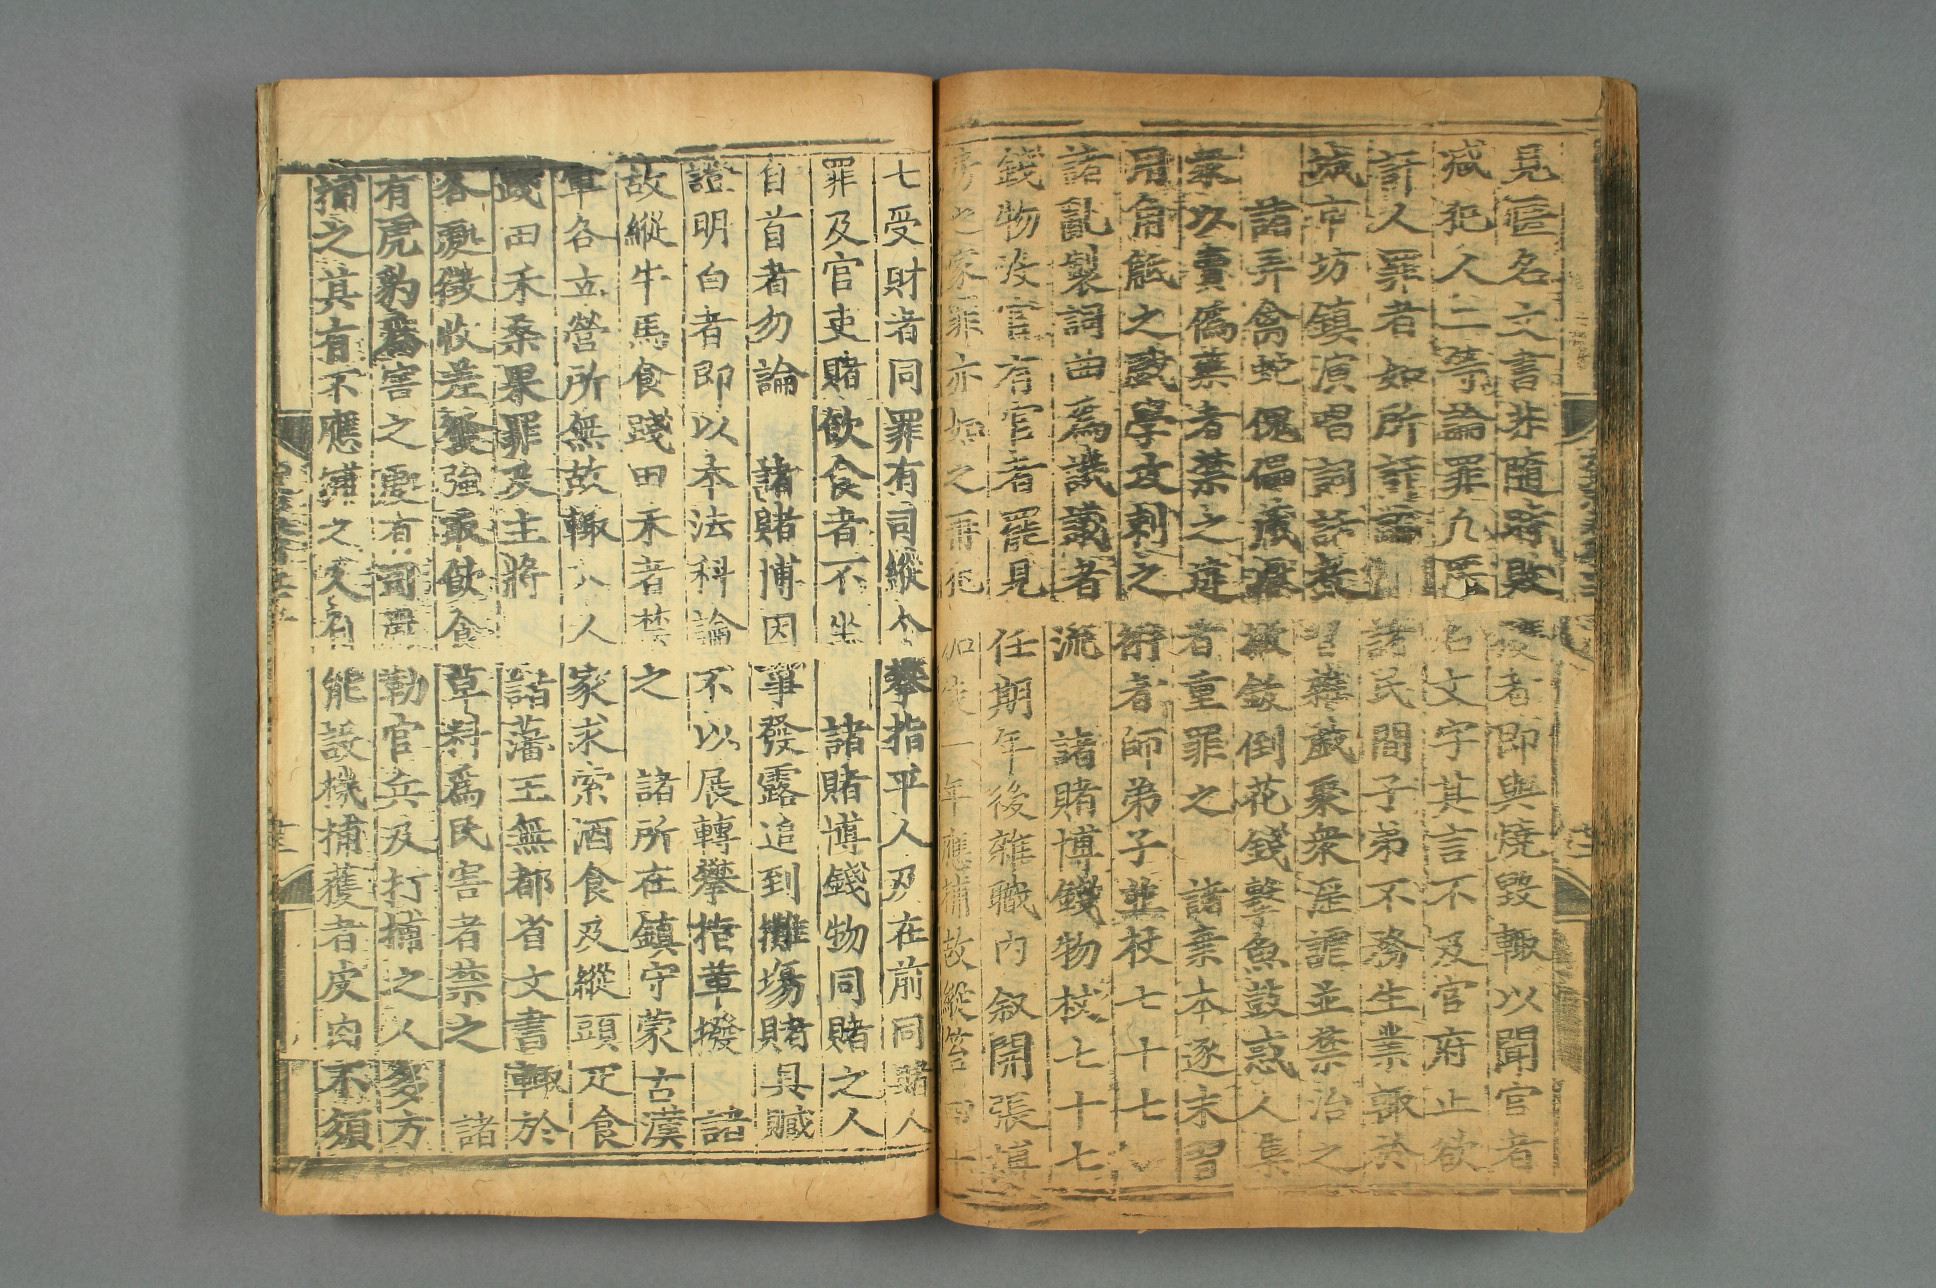 見匿名文書非隨時敗獲者即與燒毀輒以聞官者
減犯人二等論罪凡匿名文字其言不及官府止欲
訐人罪者如所訐論　諸民間子弟不務生業輒於
城市坊鎮演唱詞話教習雜戲聚衆淫謔並禁治之
諸弄禽蛇傀儡藏擫撇鈸倒花錢擊魚鼓惑人集
衆以賣僞藥者禁之違者重罪之　諸棄本逐末習
用角觝之戲學攻刺之術者師弟子並杖七十七
諸亂製詞曲爲譏議者流　諸賭博錢物杖七十七
錢物没官有官者罷見任期年後雜職內叙開張博
房之家罪亦如之再犯加徒一年應捕故縱笞四十
七受財者同罪有司縱令攀指平人及在前同賭人
罪及官吏賭飲食者不坐　諸賭博錢物同賭之人
自首者勿論　諸賭博因事發露追到攤場賭具贓
證明白者即以本法科論不以展轉攀指革撥　諸
故縱牛馬食踐田禾者禁之　諸所在鎮守蒙古漢
軍各立營所無故輒入人家求索酒食及縱頭疋食
踐田禾桑果罪及主將　諸藩王無都省文書輒於
各處徵收差發強取飲食草料爲民害者禁之　諸
有虎豹爲害之處有司嚴勒官兵及打捕之人多方
捕之其有不應捕之人自能設機捕獲者皮肉不須